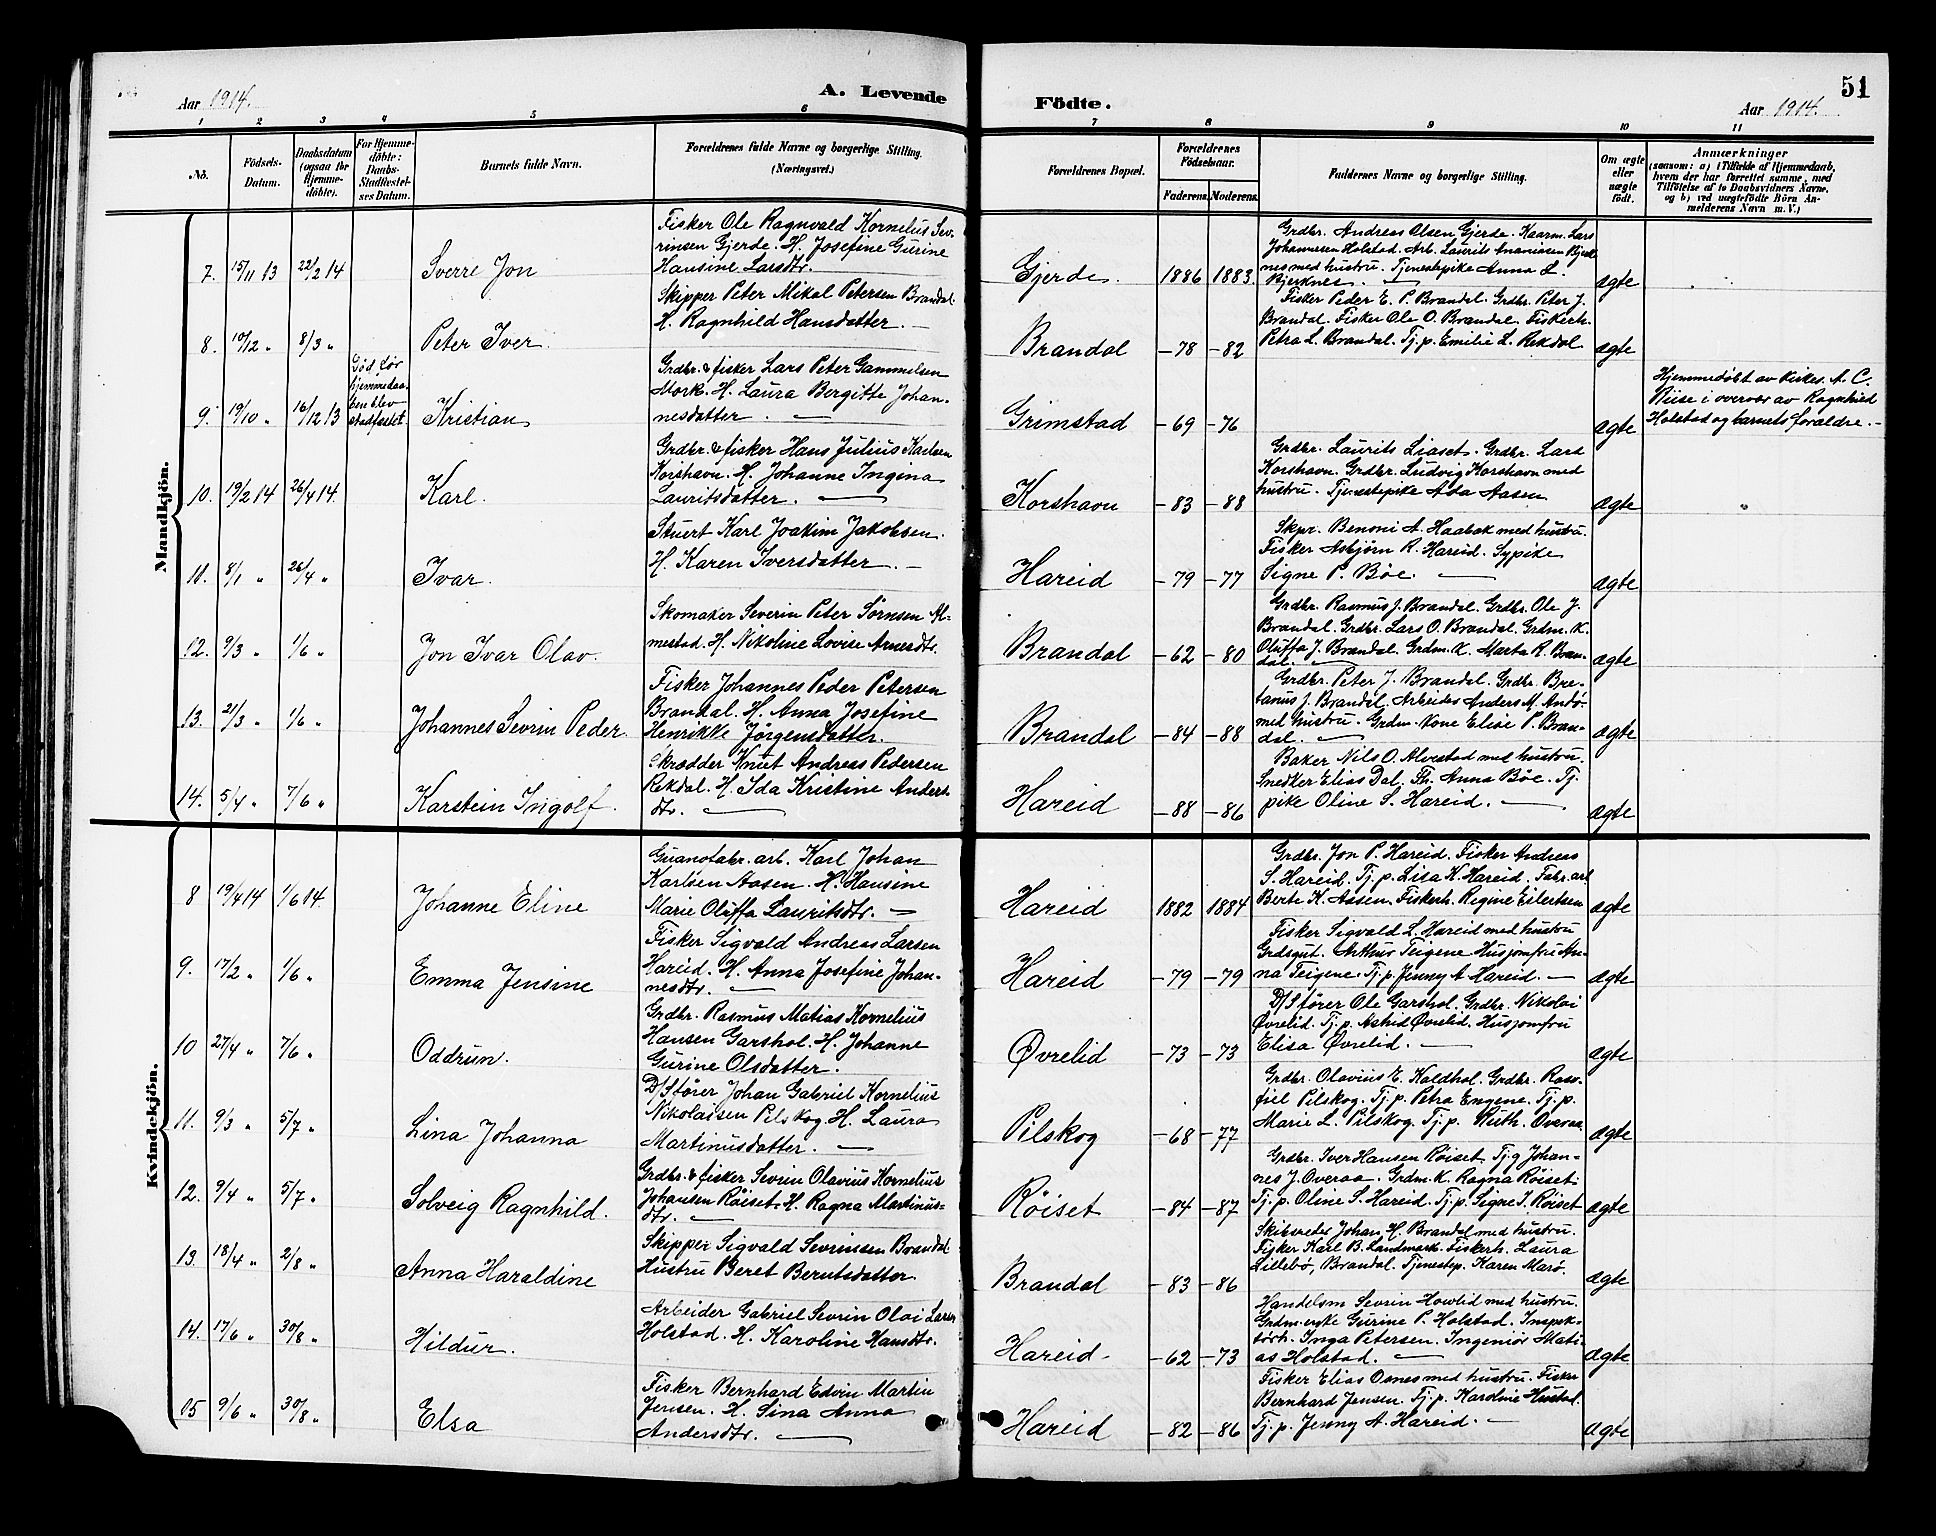 Aar 1914. A. Levende Födte. Aar 1914. 51
1 2 3 4 5 6 7 8 9 10 11
No. Födsels-Datum. Daabsdatum (ogsaa for Hjemmedöbte). For Hjemmedöbte: Daabs-Stadfæstelses Datum. Barnets fulde Navn. Forældrenes fulde Navne og borgerlige Stilling. (Næringsvei.) Forældrenes Bopæl. Forældrenes Födselsaar. Faderens. Moderens. Faddernes Navne og borgerlige Stilling. Om ægte eller uægte født. Anmærkninger (saasom: a) i Tilfælde af Hjemmedaab, hvem der har forrettet samme, med Tilföielse af to Daabsvidners Navne, og b) ved uægtefödte Börn Anmelderens Navn m. V.)
Mandkjön.
7. 15/11 13 22/2 14 Sverre Jon
Fisker Ole Ragnvald Kornelius Sev-
rinsen Gjerde. H. Josefine Gurine
Hansine Larsdtr.
Gjerde 1886 1883
Grdbr. Andreas Olsen Gjerde. Kaarm. Lars
Johannesen Holstad. Arb. Laurits Ananiasen Bjerk-
nes med hustru. Tjenestepike Anna L.
Bjerknes.
ægte
8. 10/12 " 8/3 " Peter Iver
Skipper Peter Mikal Petersen Brandal.
H. Ragnhild Hansdatter.
Brandal -78 -82
Fisker Peder E. P. Brandal. Grdbr. Peter J.
Brandal. Fisker Ole O. Brandal. Fiskerh.
Petra L. Brandal. Tj. p. Emilie L. Rekdal
ægte
9. 19/10 " 16/12 13 Död før
hjemmedaa-
ben blev
stadfæstet. Kristian
Grdbr. & fisker Lars Peter Gammelsen
Mork. H. Laura Bergitte Johan-
nesdatter.
Grimstad -69 -76 ægte
Hjemmedöbt av kirkes. A. C.
Riise i overvær av Ragnhild
Holstad og barnets forældre.
10. 19/2 14 26/4 14. Karl.
Grdbr. & fisker Hans Julius Karlsen
Korshavn. H. Johanne Ingina
Lauritsdatter.
Korshavn -83 -88
Grdbr. Laurits Liaset. Grdbr. Lars
Korshavn. Grdbr. Ludvig Korshavn med
hustru. Tjenestepike Ada Aasen
ægte "
11. 8/1 " 26/4 " Ivar.
Stuert Karl Joakim Jakobsen.
H. Karen Iversdatter.
Hareid -79 -77
Skpr. Benoni A. Haabak med hustru.
Fisker Asbjørn R. Hareid. Sypike
Signe P. Bøe.
ægte
12. 9/3 " 1/6 " Jon Ivar Olav.
Skomaker Severin Peter Sørnsen Al-
mestad. H. Nikoline Lovise Arnesdtr.
Brandal -62 -80
Grdbr. Rasmus J. Brandal. Grdbr. Ole J.
Brandal. Grdbr. Lars O. Brandal. Grdm. K.
Oluffa J. Brandal. Grdm. K. Marta R. Bran-
dal.
ægte
13. 21/3 " 1/6 " Johannes Sevrin Peder
Fisker Johannes Peder Petersen
Brandal. H. Anna Josefine
Henrikke Jörgensdatter.
Brandal -84 -88
Grdbr. Peter J. Brandal. Grdbr. Bre-
tanus J. Brandal. Arbeider Anders M. Andø-
med hustru. Grdm. Kone Elise P. Bran-
dal.
ægte
14. 5/4 " 7/6 " Karstein Ingolf.
Skrædder Knut Andreas Pedersen
Rekdal. H. Ida Kristine Anders-
dtr.
Hareid -88 -86
Baker Nils O. Alvestad med hustru.
Snedker Elias Dal. Th. Anna Bøe. Tj.
pike Oline S. Hareid.
ægte
Kvindekjön.
8 19/4 14 1/6 14. Johanne Eline
Guanofabr. arb. Karl Johan
Karlsen Aasen. H. Hansine
Marie Oluffa Lauritsdtr.
Hareid 1882 1884
Grdbr. Jon P. Hareid. Fisker Andreas
S. Hareid. Tj. p. Lisa K. Hareid. Fabr. arb.
Berte K. Aasen. Fiskerh. Regine Eilertsen
ægte
9. 17/2 " 1/6 " Emma Jensine
Fisker Sigvald Andreas Larsen
Hareid. H. Anna Josefine Johan-
nesdtr.
Hareid -79 -79
Fisker Sigvald L. Hareid med hustru
Grdsgut. Arthur Teigene Husjomfru An-
na Teigene. Tj. p. Jenny A. Hareid.
ægte
10 27/4 " 7/6 " Oddrun.
Grdbr. Rasmus Matias Kornelius
Hansen Garshol. H. Johanne
Gurine Olsdatter.
Øvrelid -73 -73
D/S fører Ole Garshol. Grdbr. Nikolai
Øvrelid. Tj. p. Astrid Øvrelid. Husjomfru
Elisa Øvrelid.
ægte
11. 9/3 " 5/7 " Lina Johanna
D/S fører Johan Gabriel Kornelius
Nikolaisen Pilskog H. Laura
Martinusdatter.
Pilskog -68 -77
Grdbr. Olavius E. Kaldhol. Grdbr. Ras-
Pilskog. Tj. p. Petra Engene. Tj. p.
Marie L. Pilskog. Tj. p. Ruth. Overaa.
ægte
12. 9/4 " 5/7 " Solveig Ragnhild.
Grdbr. & fisker Sevrin Olavius Kornelius
Johansen Røiset. H. Ragna Martinus-
dtr.
Røiset -84 -87
Grdbr. Iver Hansen Røiset. Tj. g Johan-
nes J. Overaa. Grdm. K. Ragna Røiset.
Tj. p. Oline S. Hareid. Tj. p. Signe I. Røiset
ægte
13. 18/4 " 2/8 " Anna Haraldine
Skipper Sigvald Sevrinsen Brandal.
Hustru Beret Berntsdatter.
Brandal -83 -86
Skibsreder Johan H. Brandal med hustru.
Fisker Karl B. Landmark. Fiskerh. Laura
Lillebø, Brandal. Tjenestep. Karen Marø.
ægte
14. 17/6 " 30/8 " Hildur.
Arbeider Gabriel Sevrin Olai Larsen
Holstad. H. Karoline Hansdtr.
Hareid -62 -73
Handelsm Sevrin Hovlid med hustru.
Grdm. enke Gurine P. Holstad. Inspek-
törh. Inga Petersen. Ingeniör Mati-
as Holstad.
ægte
15 9/6 " 30/8 " Elsa
Fisker Bernhard Edvin Martin
Jensen. H. Sina Anna
Andersdtr.
Hareid -82 -86
Fisker Elias Osnes med hustru. Fisker
Bernhard Jensen. Tj. p. Karoline Hustad.
Tj. p. Jenny A. Hareid.
ægte